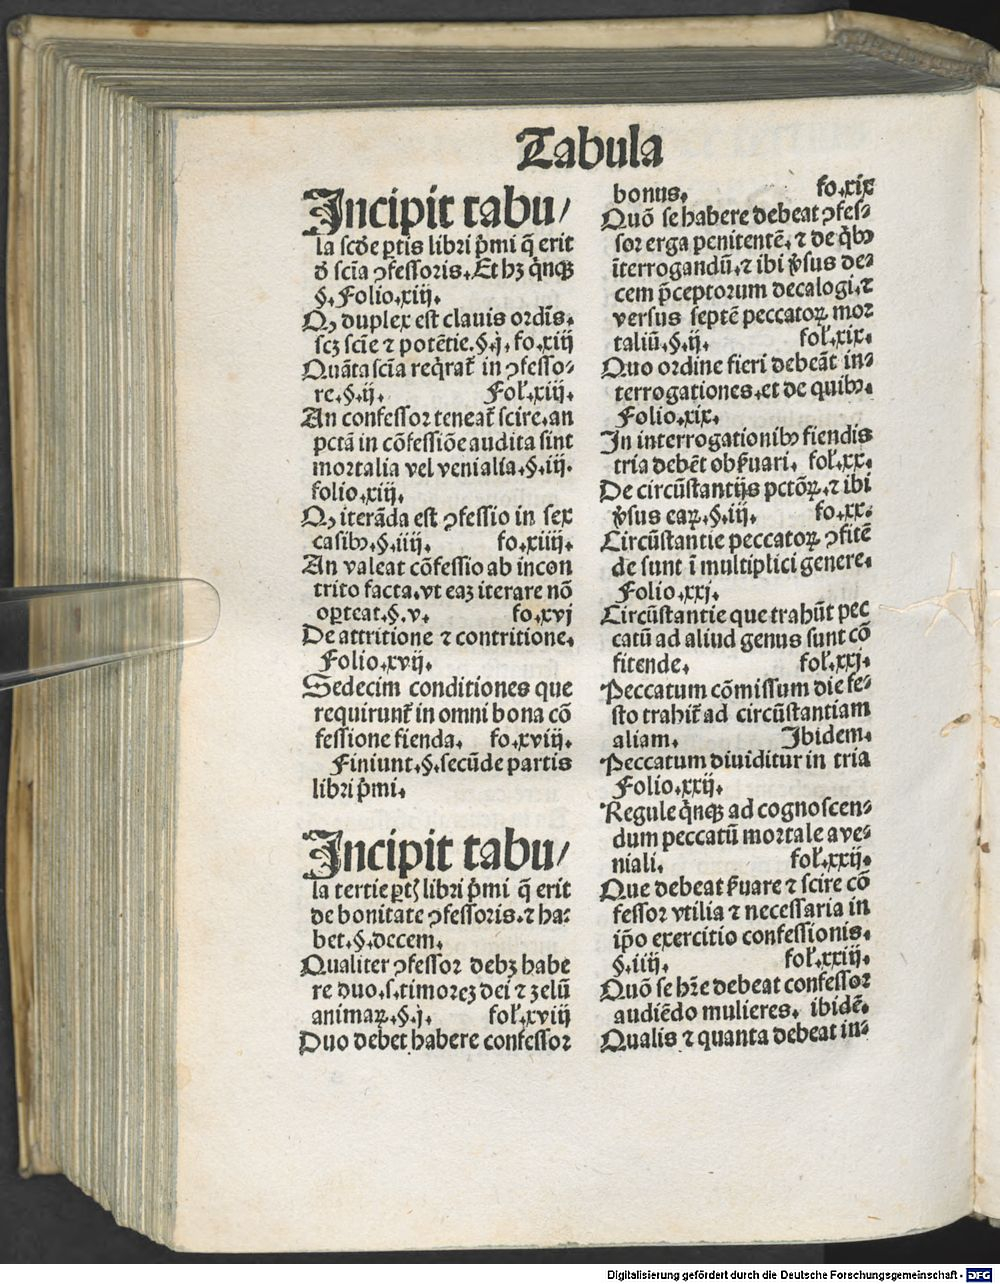 Tabula
Incipit tabu/
la scd̄e ꝑtis libri p̄mi q̄ erit
d̄ scīa ꝯfessoris. Et hꝫ q̇nqꝫ
§. Folio.xiij.
Qꝫ duplex est clauis ordīs.
scꝫ scīe ⁊ potētie. §.j. fo.xiij
Quāta scīa req̇rat᷑ in ꝯfesso⸗
re. §.ij. Fol̓.xiij.
An confessor teneat᷑ scire. an
pctā in cōfessiōe audita sint
mortalia vel venialia. §.iij.
folio.xiij.
Qꝫ iterāda est ꝯfessio in sex
casibꝰ. §.iiij. fo.xiiij.
An valeat cōfessio ab incon
trito facta. vt eaꝫ iterare nō
oꝑteat. §.v. fo.xvj
De attritione ⁊ contritione.
Folio.xvij.
Sedecim conditiones que
requirunt᷑ in omni bona cō
fessione fienda. fo.xviij.
Finiunt. §. secūde partis
libri p̄mi.
Incipit tabu/
la tertie ꝑtꝭ libri p̄mi q̄ erit
de bonitate ꝯfessoris. ⁊ ha⸗
bet. §. decem.
Qualiter ꝯfessor debꝫ habe
re duo. s. timoreꝫ dei ⁊ zelū
animaꝝ. §.j. fol̓.xviij
Duo debet habere confessor
bonus. fo.xix
Quō se habere debeat ꝯfes⸗
sor erga penitentē. ⁊ de q̇bꝰ
īterrogandū. ⁊ ibi v̓sus de⸗
cem p̄ceptorum decalogi. ⁊
versus septē peccatoꝝ mor
taliū. §.ij. fol̓.xix.
Quo ordine fieri debeāt in⸗
terrogationes. et de quibꝰ.
Folio.xix.
In interrogationibꝰ fiendis
tria debēt obẜuari. fol̓.xx.
De circūstantijs pctōꝝ. ⁊ ibi
v̓sus eaꝝ. §.iij. fo.xx.
Circūstantie peccatoꝝ ꝯfitē
de sunt ī multiplici genere.
Folio.xxj.
Circūstantie que trahūt pec
catū ad aliud genus sunt cō
fitende. fol̓.xxj.
Peccatum cōmissum die fe⸗
sto trahit᷑ ad circūstantiam
aliam. Ibidem.
Peccatum diuiditur in tria
Folio.xxij.
Regule q̇nqꝫ ad cognoscen⸗
dum peccatū mortale a ve⸗
niali. fol̓.xxij.
Que debeat ẜuare ⁊ scire cō
fessor vtilia ⁊ necessaria in
ip̄o exercitio confessionis.
§.iiij. fol̓.xxiij.
Quō se hr̄e debeat confessor
audiēdo mulieres. ibidē.
Qualis ⁊ quanta debeat in⸗
Digitalisierung gefördert durch die Deutsche Forschungsgemeinschaft - DFG